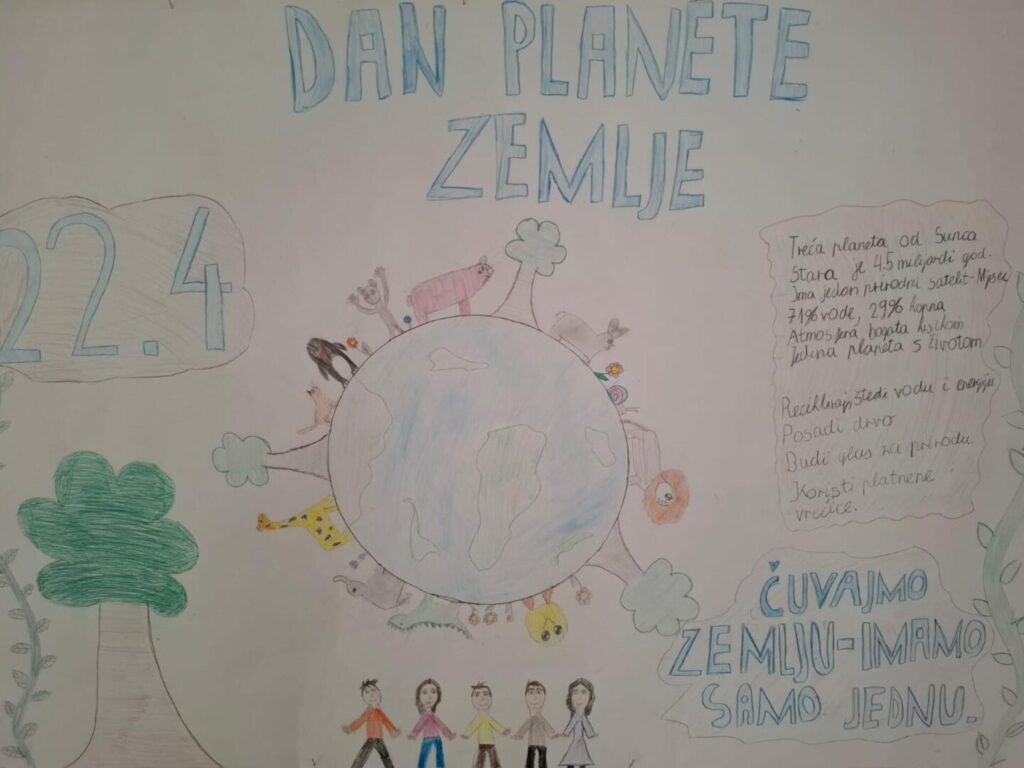 DAN PLANETE
ZEMLJE
22.4
Treća planeta od Sunca
Stara je 4.5 milijardi god.
Ima jedan prirodni satelit-Mjesec
71% vode, 29% kopna
Atmosfera bogata kisikom
Jedina planeta s životom
Recikliraj štedi vodu i energiju
Posadi drvo
Budi glas za prirodu.
Koristi platnene
vrećice.
ČUVAJMO
ZEMLJU-IMAMO
SAMO JEDNU.